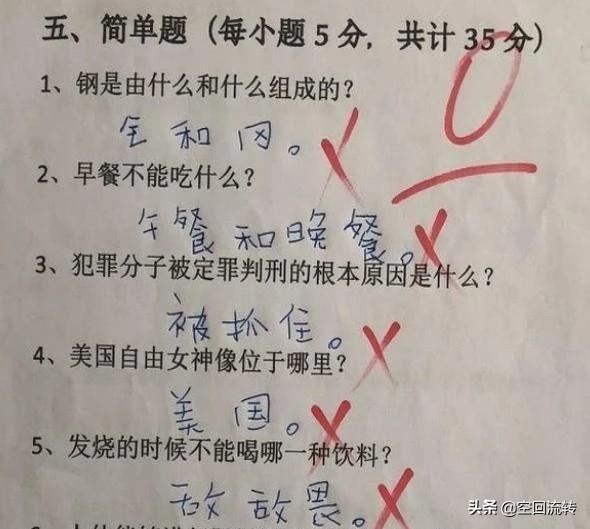 五、简单题（每小题5分，共计35分）
0
1、钢是由什么和什么组成的？
全和冈。
2、早餐不能吃什么？
午餐和晚餐。
3、犯罪分子被定罪判刑的根本原因是什么？
被抓住。
4、美国自由女神像位于哪里？
美国。
5、发烧的时候不能喝哪一种饮料？
敌敌畏。
头条 @空回流转